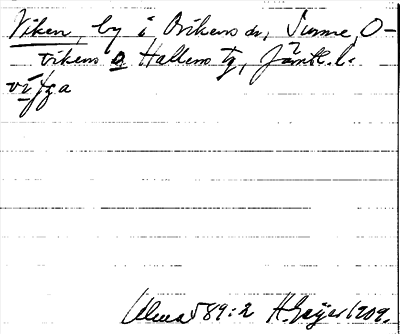 Viken, by i Ovikens sn, Sunne, O-
vikens o Hallens tg, Jämtl. l.
viſga
Ulma 589:2 H. Geijer 1909.